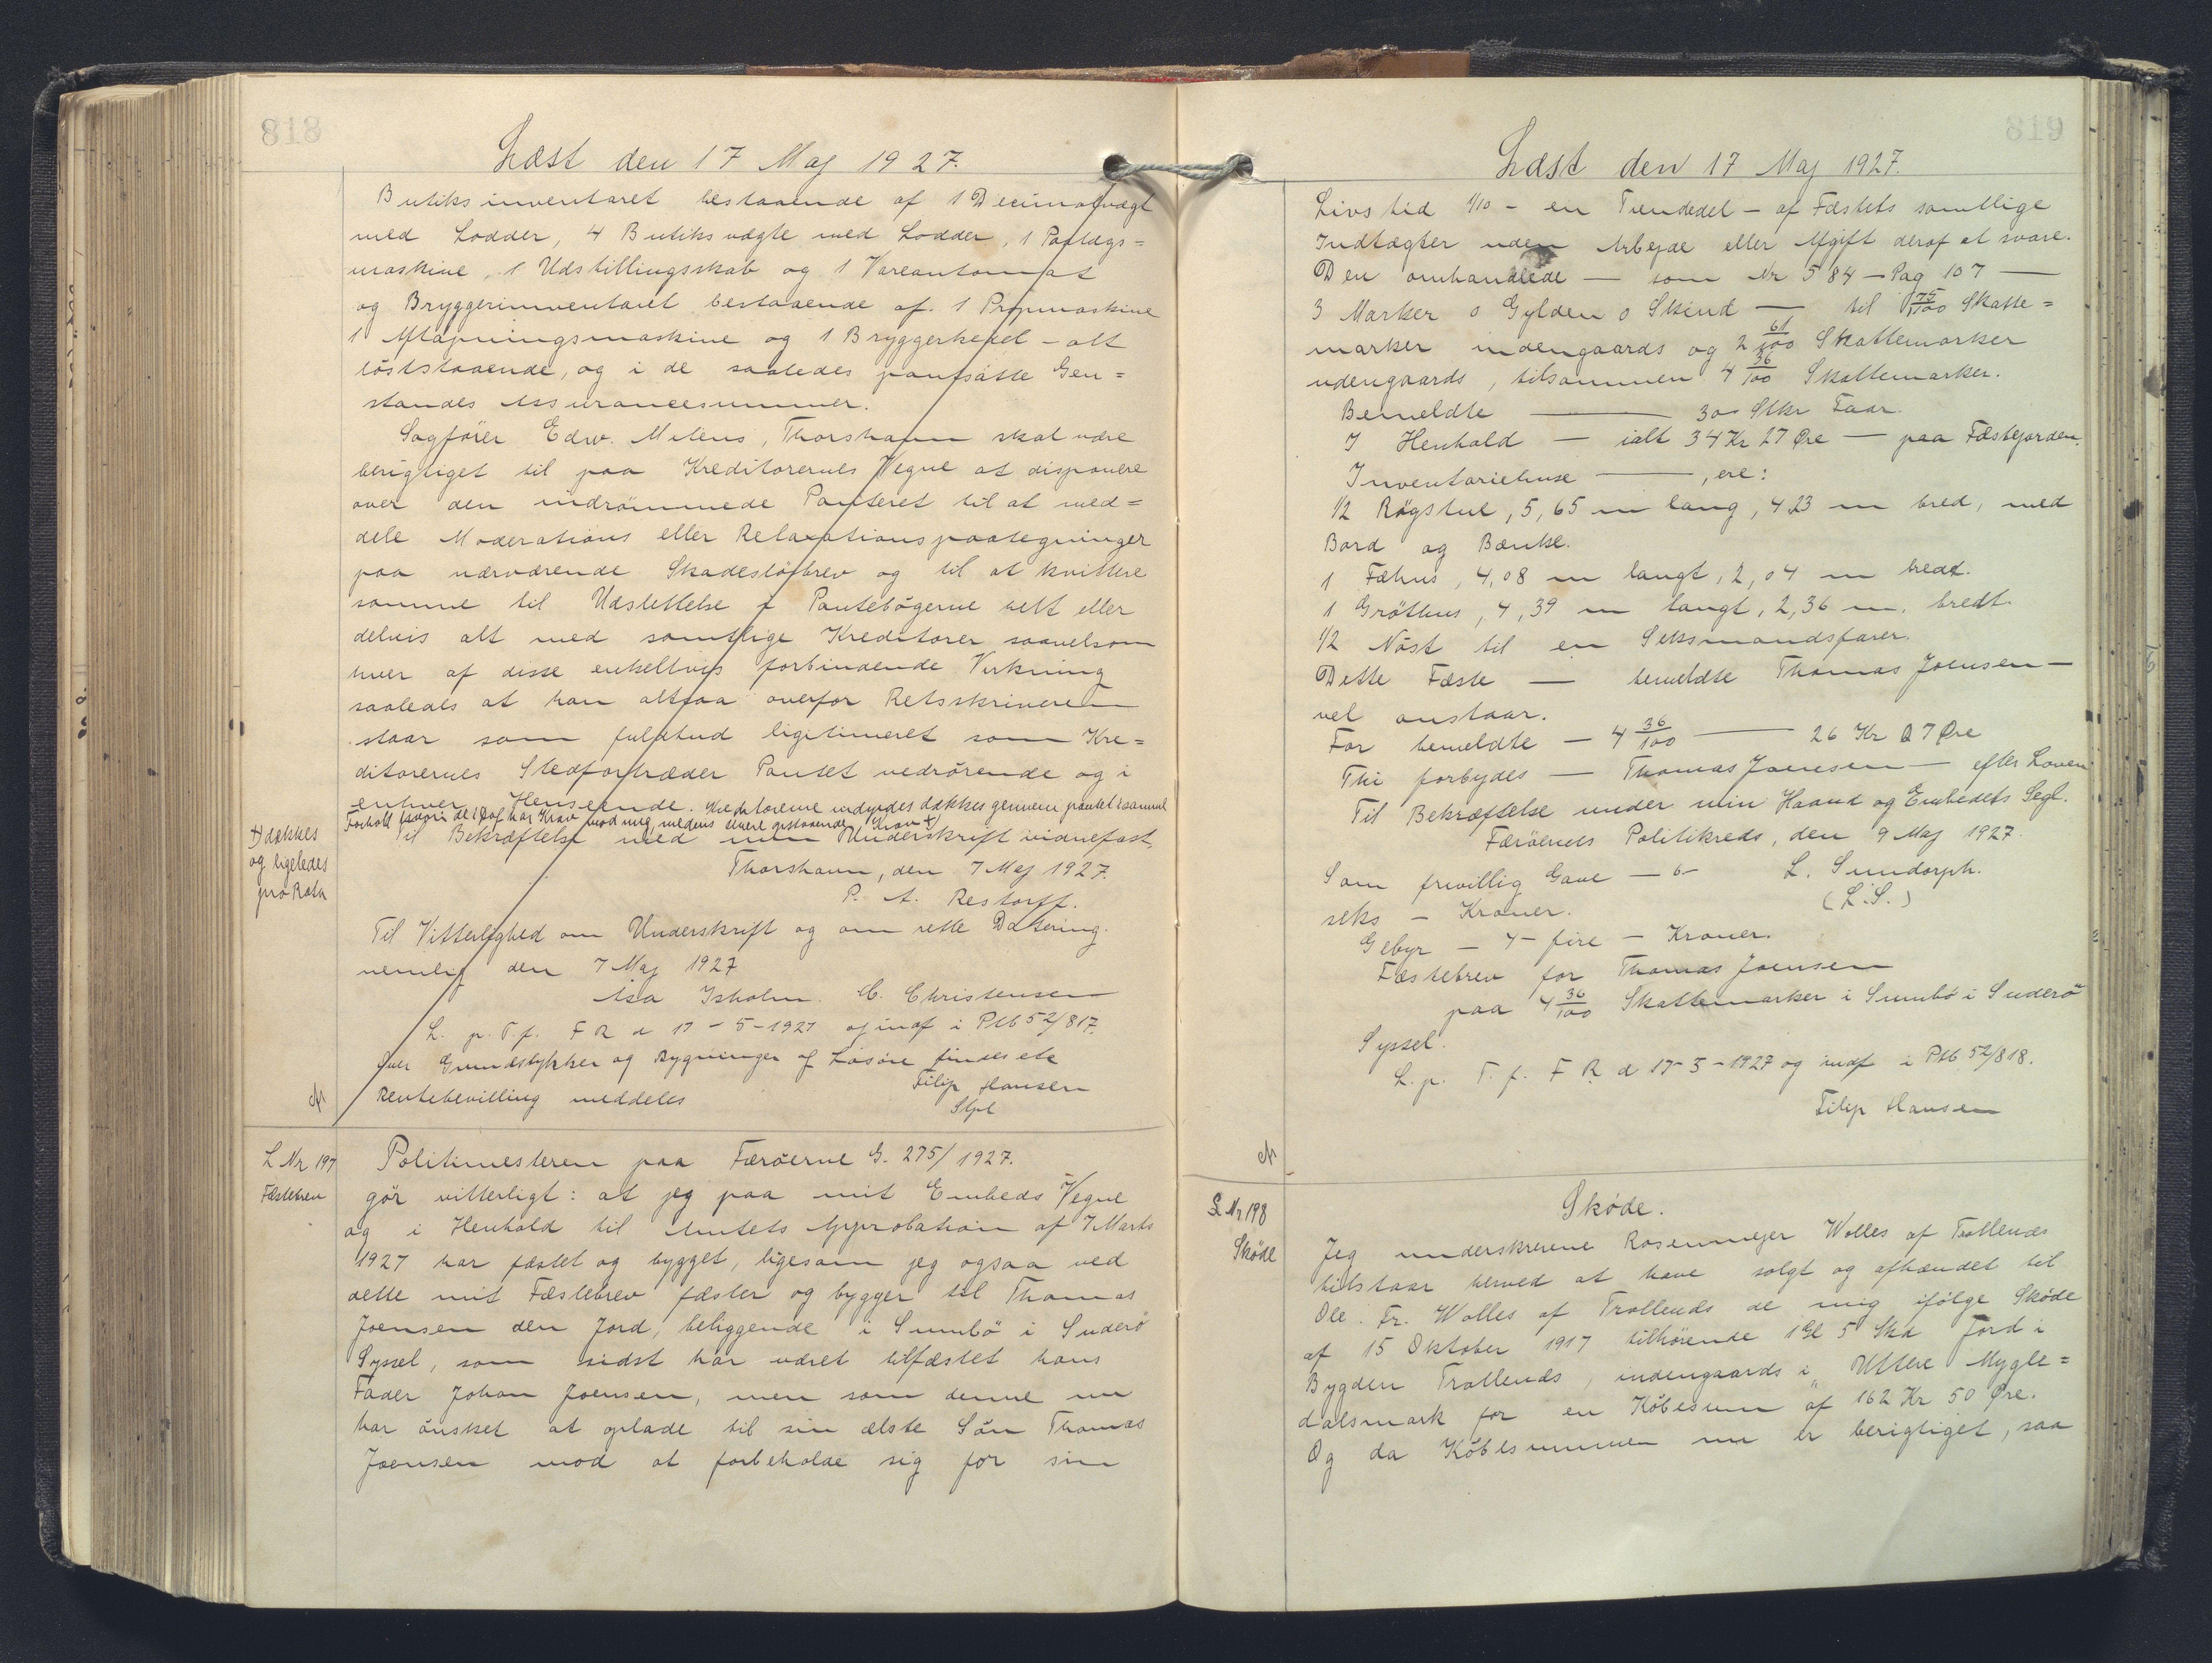 818
Læst den 17 Maj 1927.
Butiksinventaret bestaaende af 1 Decimalvægt
med Lodder, 4 Butiksvægte med Lodder, 1 Paalægs=
maskine, 1 Udstillingsskab og 1 Vareautomat
og Bryggerinventaret bestaaende af 1 Propmaskine
1 Aftapningsmaskine og 1 Bryggerkedel - alt
löststaaende, og i de saaledes pantsatte Gen=
standes Assurancesummer.
Sagförer Edw. Mitens, Thorshavn skal være
berigtiget til paa Kreditorernes Vegne at disponere
over den indrömmede Panteret til at med=
dele Moderations eller Relaxationspaategninger
paa nærværende Skadeslösbrev og til at kvittere
samme til Udslettelse i Pantebögerne helt eller
delvis alt med samtlige Kreditorer saavelsom
hver af disse enkeltvis forbindende Virkning
saaledes at han altsaa overfor Retsskriveren
staar som fuldtud ligitimeret som Kre=
ditorernes Stedfortræder Pantet vedrörende og i
enhver Henseende. Kreditorerne indbyrdes dækkes gennem pantet i samme
Forhold hvori de i Dag har Krav mod mig, medens senere opstaaende Krav +)
+) dækkes
og ligeledes
pro Rata
Til Bekræftelse med min Underskrift vidnefast.
Thorshavn, den 7 Maj 1927.
P. A. Restorff.
Til Vitterlighed om Underskrift og om rette Datering.
nemlig den 7 Maj 1927
Asa Isholm. C. Christensen
L. p. T. f. F R d 17-5-1927 og indf i Ptb 52/817.
Paa Grundstykker og Bygninger og Lösöre findes ete
Rentebevilling meddeles
Filip Hansen
Stpl
L Nr 197
Fæstebrev
Politimesteren paa Færöerne G. 275/1927.
gör vitterligt: at jeg paa mit Embeds Vegne
og i Henhold til Amtets Approbation af 7 Marts
1927 har fæstet og bygget, ligesom jeg ogsaa ved
dette mit Fæstebrev fæster og bygger til Thomas
Joensen den Jord, beliggende i Sumbö i Suderö
Syssel, som sidst har været tilfæstet hans
Fader Johan Joensen, men som denne nu
har önsket at oplade til sin ælste Sön Thomas
Joensen mod at forbeholde sig for sin
819
Læst den 17 Maj 1927.
Livstid 1/10 - en Tiendedel - af Fæstets samtlige
Indtægter uden Arbejde eller Afgift deraf at svare.
Den omhandlede — som Nr 584 - Pag 107 —
3 Marker 0 Gylden 0 Skind — til 1 75/100 Skatte=
marker indengaards og 2 61/100 Skattemarker
udengaards, tilsammen 4 36/100 Skattemarker.
Bemeldte — 30 Stkr Faar.
I Henhold — ialt 34 Kr 27 Øre — paa Fæstejorden.
Inventariehuse —, ere:
1/2 Røgstue, 5,65 m lang, 4,23 m bred, med
Bord og Bænke.
1 Fæhus, 4,08 m langt, 2,04 m bredt.
1 Gröthus, 4,39 m langt, 2,36 m. bredt.
1/2 Nöst til en Seksmandsfarer.
Dette Fæste — bemeldte Thomas Joensen —
vel anstaar.
For bemeldte — 4 36/100 — 26 Kr 27 Øre
Thi forbydes — Thomas Joensen — efter Loven
Til Bekræftelse under min Haand og Embedets Segl.
Færöernes Politikreds, den 9 Maj 1927.
Som frivillig Gave - 6 -
L. Sundorph.
seks - Kroner.
(L.S.)
Gebyr - 4 - fire - Kroner.
Fæstebrev for Thomas Joensen
paa 4 36/100 Skattemarker i Sumbö i Suderö
Syssel.
L. p. T. f. F R d 17-5-1927 og indf i Ptb 52/818.
Filip Hansen
L Nr 198
Sköde
Sköde.
Jeg underskrevne Rosenmejer Wolles af Trollenæs
tilstaar herved at have solgt og afhændet til
Ole. Fr. Wolles af Trollenæs de mig ifölge Sköde
af 15 Oktober 1917 tilhörende 1 Gl 5 Skd Jord i
Bygden Trollenæs, indengaards i "Uttere Mygle=
dalsmark for en Köbesum af 162 Kr 50 Øre.
Og da Köbesummen nu er berigtiget, saa